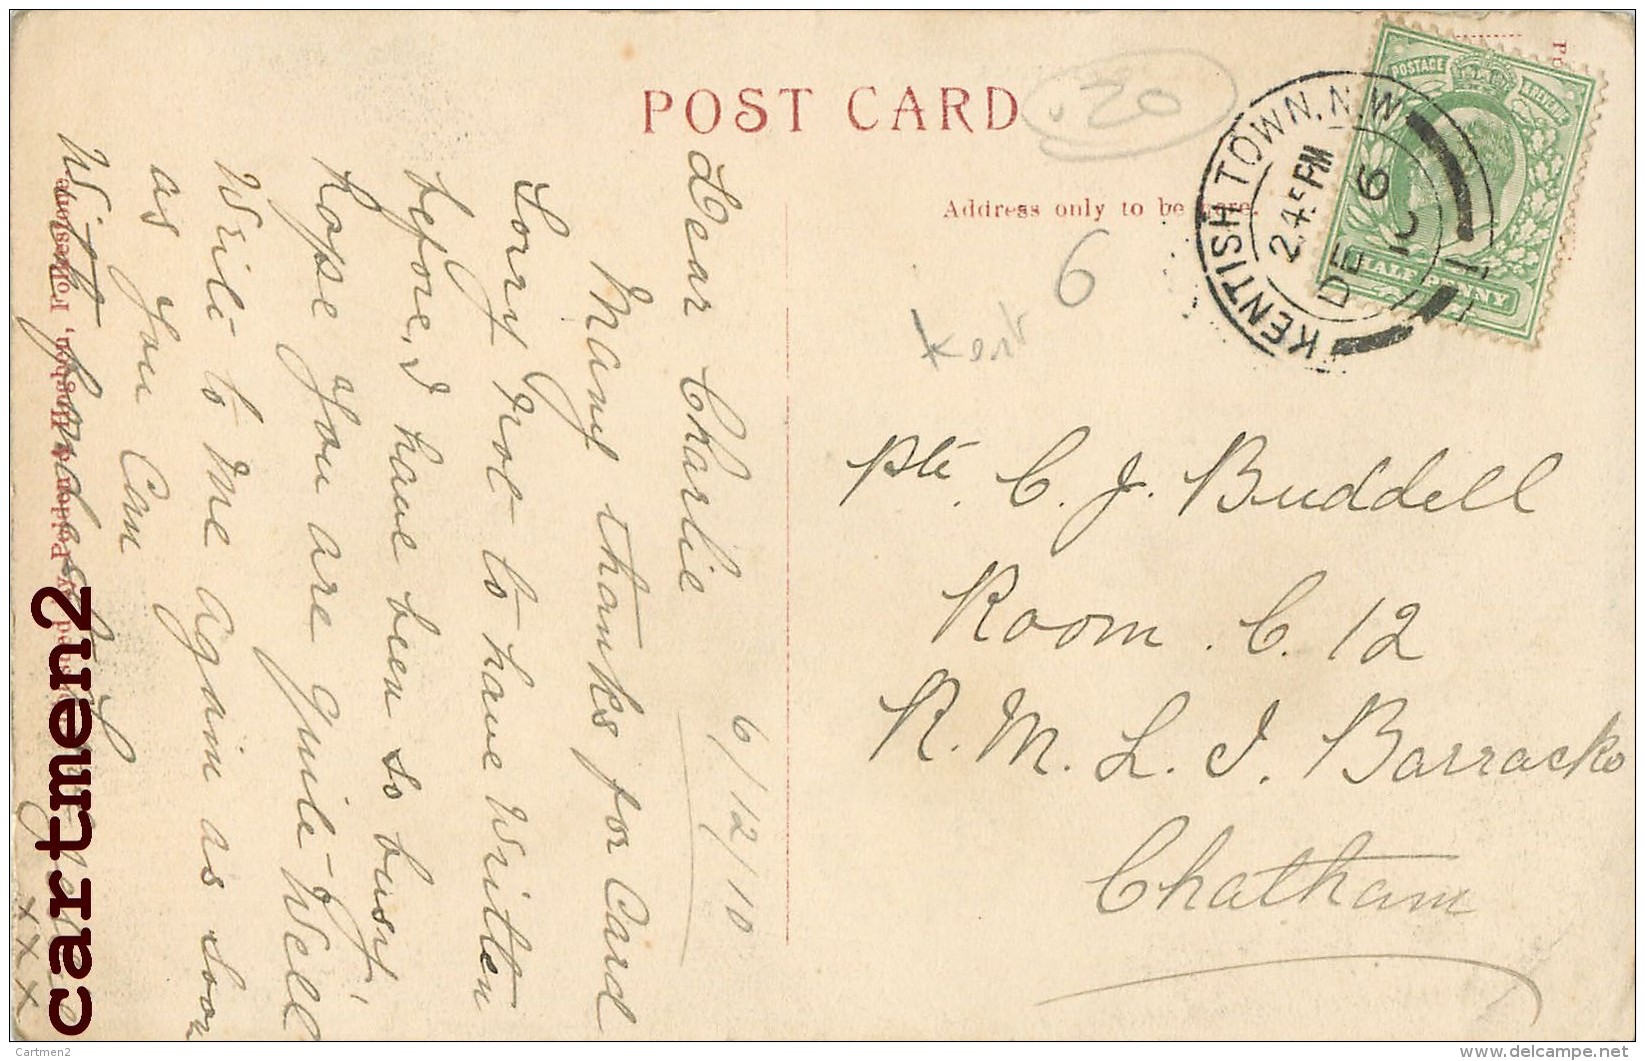 POST CARD
.20
Address only to be here.
6
Kent
POSTAGE
REVENUE
HALF PENNY
KENTISH TOWN. N.W
2.45 PM
DE 6
10
Pte. C. J. Buddell
Room . C. 12
R. M. L. I. Barracks
Chatham
6/12/10
Dear Charlie
Many thanks for Card
Sorry not to have written
before, I have been so busy,
hope you are quite well
Write to me again as soon
as you can
With fondest love
x x x
cartmen2
Cartmen2
delcampe.net